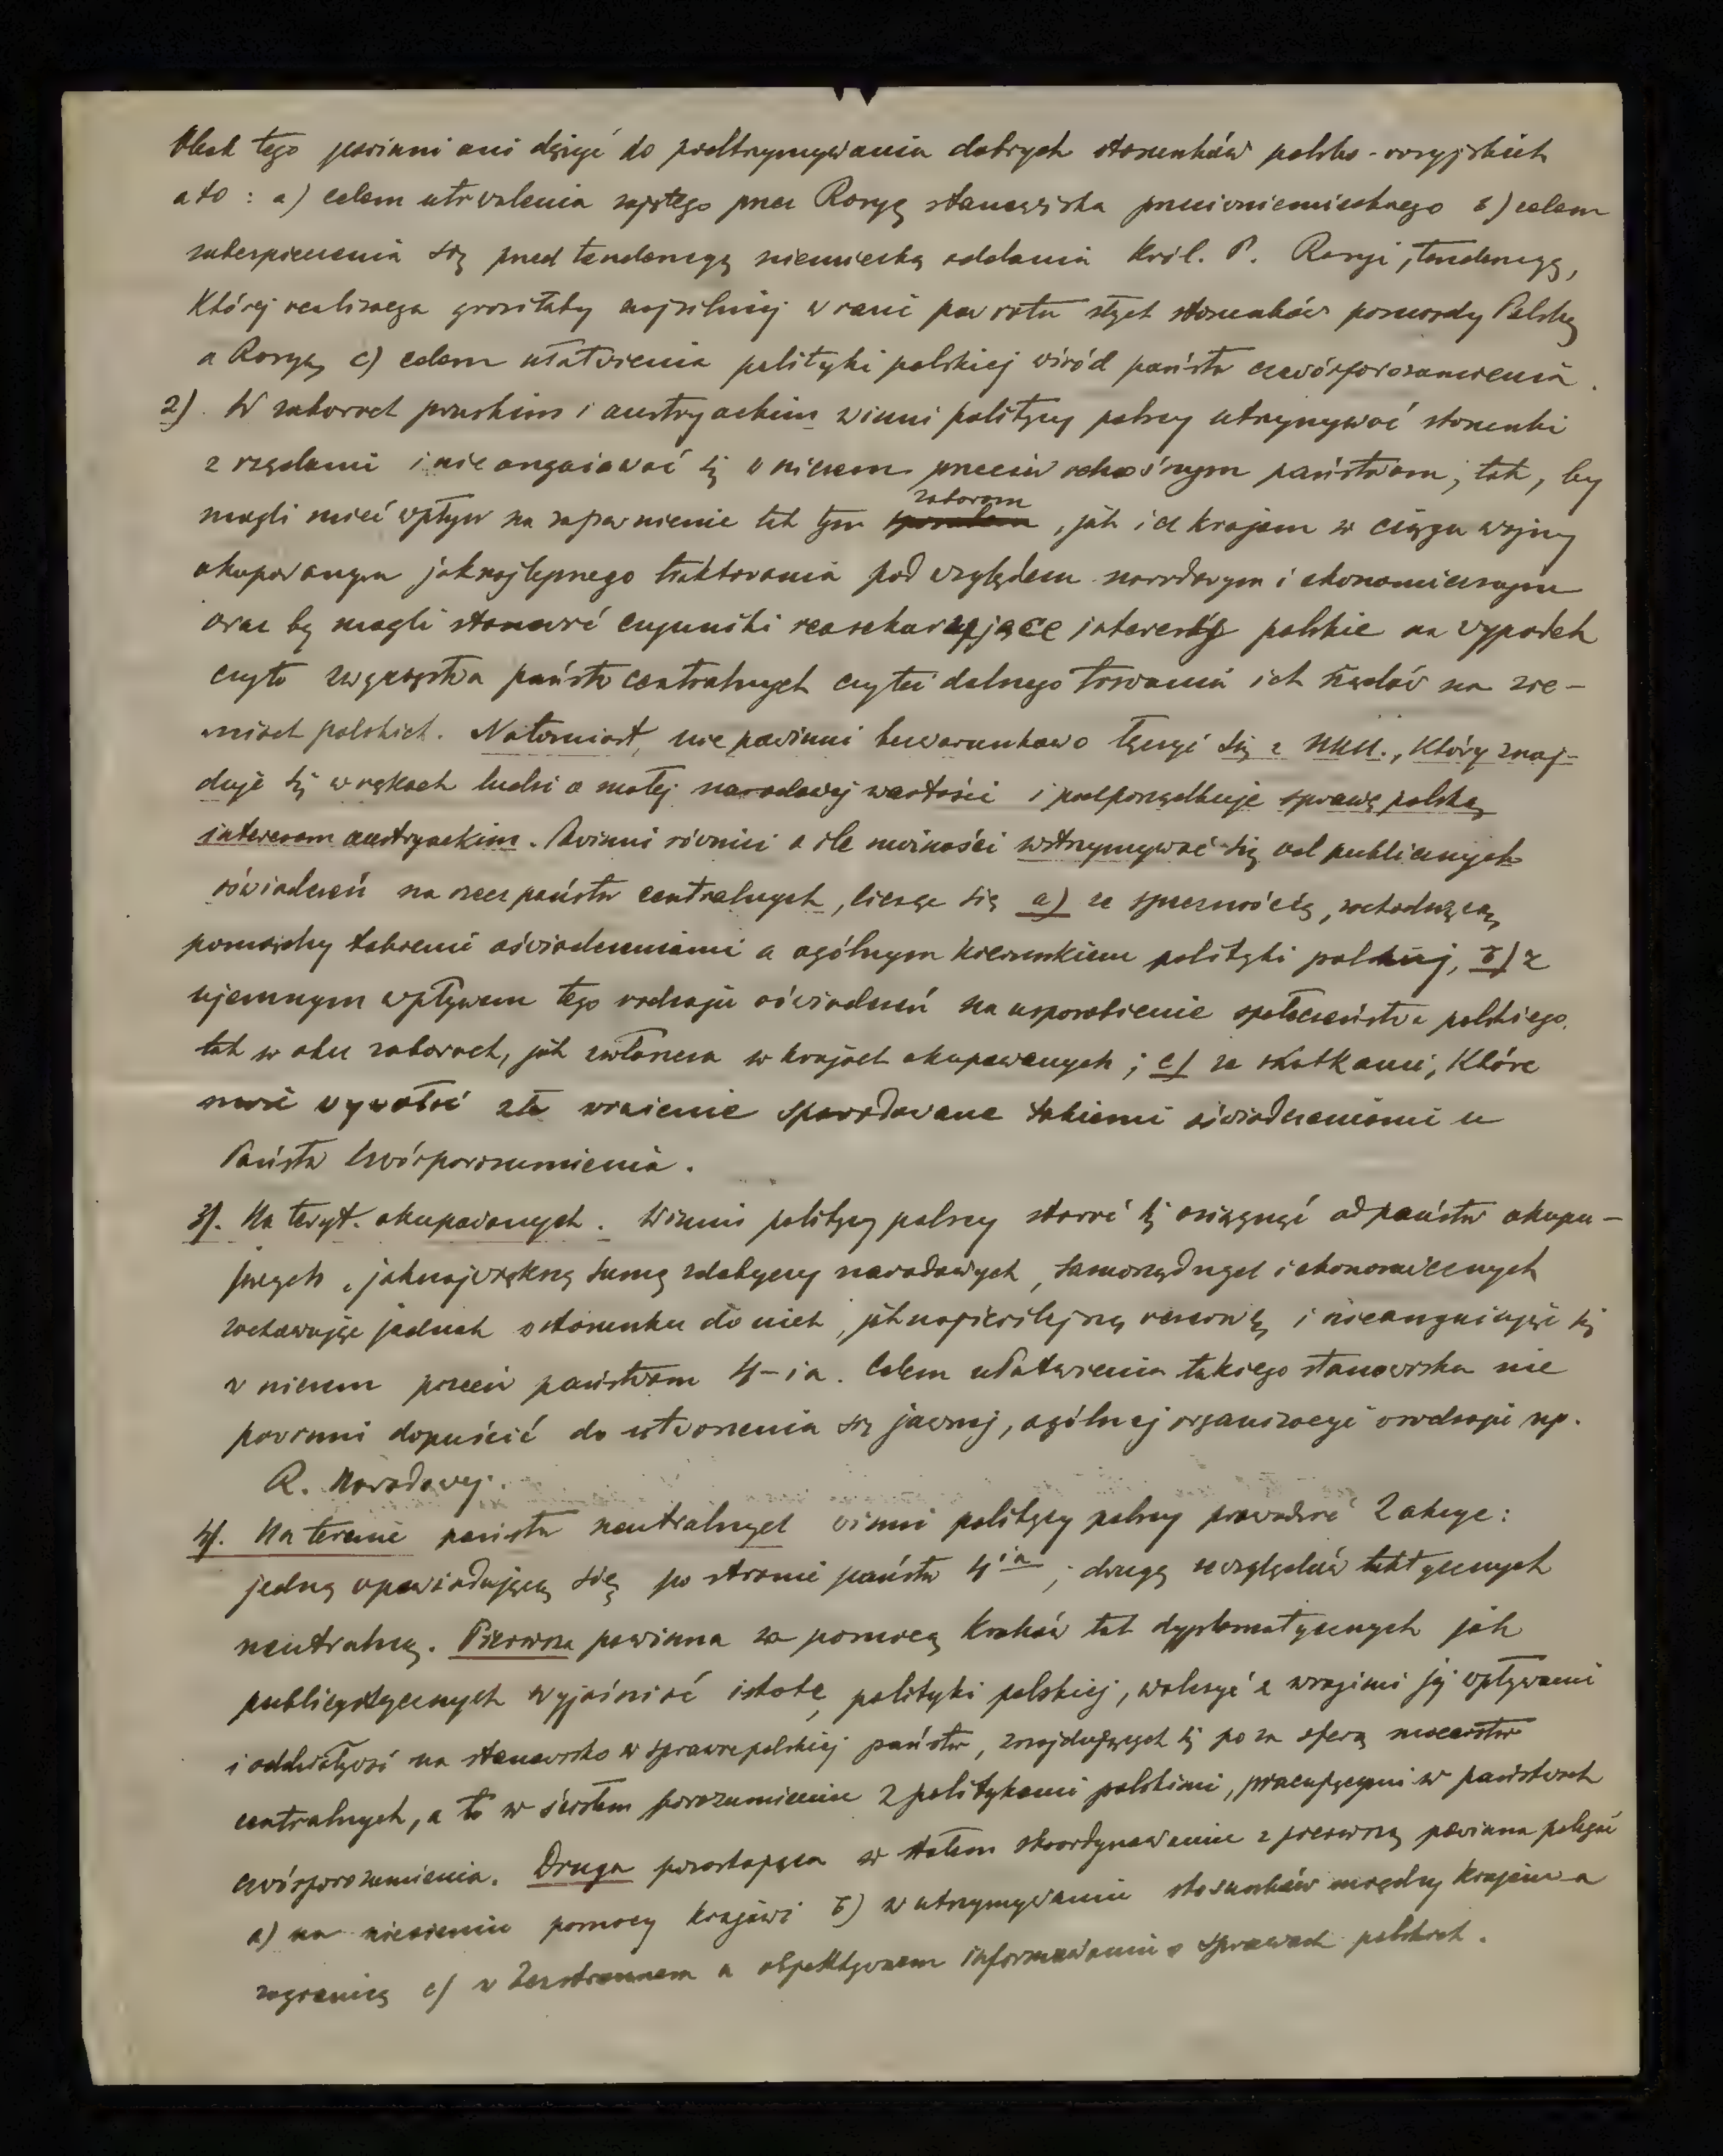 Obok tego powinni oni dążyć do podtrzymywania dobrych stosunków polsko-rosyjskich
a to: a) celem utrwalenia zajętego przez Rosyę stanowiska przeciwniemieckiego b) celem
zabezpieczenia się przed tendencyą niemiecką oddania Król. P. Rosyi, tendencyą,
której realizacya groziłaby najsilniej w razie powrotu złych stosunków pomiędzy Polską
a Rosyą, c) celem ułatwienia polityki polskiej wśród państw czwórporozumienia.
2). W zaborach pruskim i austryackim winni politycy polscy utrzymywać stosunki
z rządami i nie angażować się w niczem przeciw odnośnym państwom, tak, by
mogli mieć wpływ na zapewnienie tak tym zaborom, jak i krajom w ciągu wojny
okupowanym jaknajlepszego traktowania pod względem narodowym i ekonomicznym
oraz by mogli stanowić czynniki reasekurujące interesy polskie na wypadek
czyto zwycięstwa państw centralnych czyteż dalnego trwania ich rządów na zie-
miach polskich. Natomiast, nie powinni bezwarunkowo łączyć się z NKN., który znaj-
duje się w rękach ludzi o małej narodowej wartości i podporządkuje sprawę polską
interesom austryackim. Powinni również o ile możności wstrzymywać się od publicznych
oświadczeń na rzecz państw centralnych, licząc się a) ze sprzecznością, zachodzącą
pomiędzy takiemi oświadczeniami a ogólnym kierunkiem polityki polskiej, b) z
ujemnym wpływem tego rodzaju oświadczeń na usposobienie społeczeństwa polskiego,
tak w obu zaborach, jak zwłaszcza w krajach okupowanych; c) ze skutkami, które
może wywołać złe wrażenie spowodowane takiemi oświadczeniami u
Państw Czwórporozumienia.
3). Na teryt. okupowanych. Winni politycy polscy starać się osiągnąć od państw okupu-
jących jaknajwiększą sumę zdobyczy narodowych, samorządnych i ekonomicznych
zachowując jednak w stosunku do nich, jaknajściślejszą rezerwę i nieangażując się
w niczem przeciw państwom 4-ia. Celem ułatwienia takiego stanowiska nie
powinni dopuścić do utworzenia się jawnej, ogólnej organizacyi w rodzaju np.
R. Narodowej.
4). Na terenie państw neutralnych winni politycy polscy prowadzić 2 akcye:
jedną opowiadającą się po stronie państw 4-ia; drugą ze względów taktycznych
neutralną. Pierwsza powinna za pomocą kroków tak dyplomatycznych jak
publicystycznych wyjaśniać istotę polityki polskiej, walczyć z wrogimi jej wpływami
i oddziaływać na stanowisko w sprawie polskiej państw, znajdujących się po za sferą mocarstw
centralnych, a to w ścisłem porozumieniu z politykami polskimi, pracującymi w państwach
czwórporozumienia. Druga pozostająca w stałem skoordynowaniu z pierwszą powinna polegać
a) na niesieniu pomocy krajowi b) w utrzymywaniu stosunków między krajem a
zagranicą c) w bezstronnem a objektywnem informowaniu o sprawach polskich.